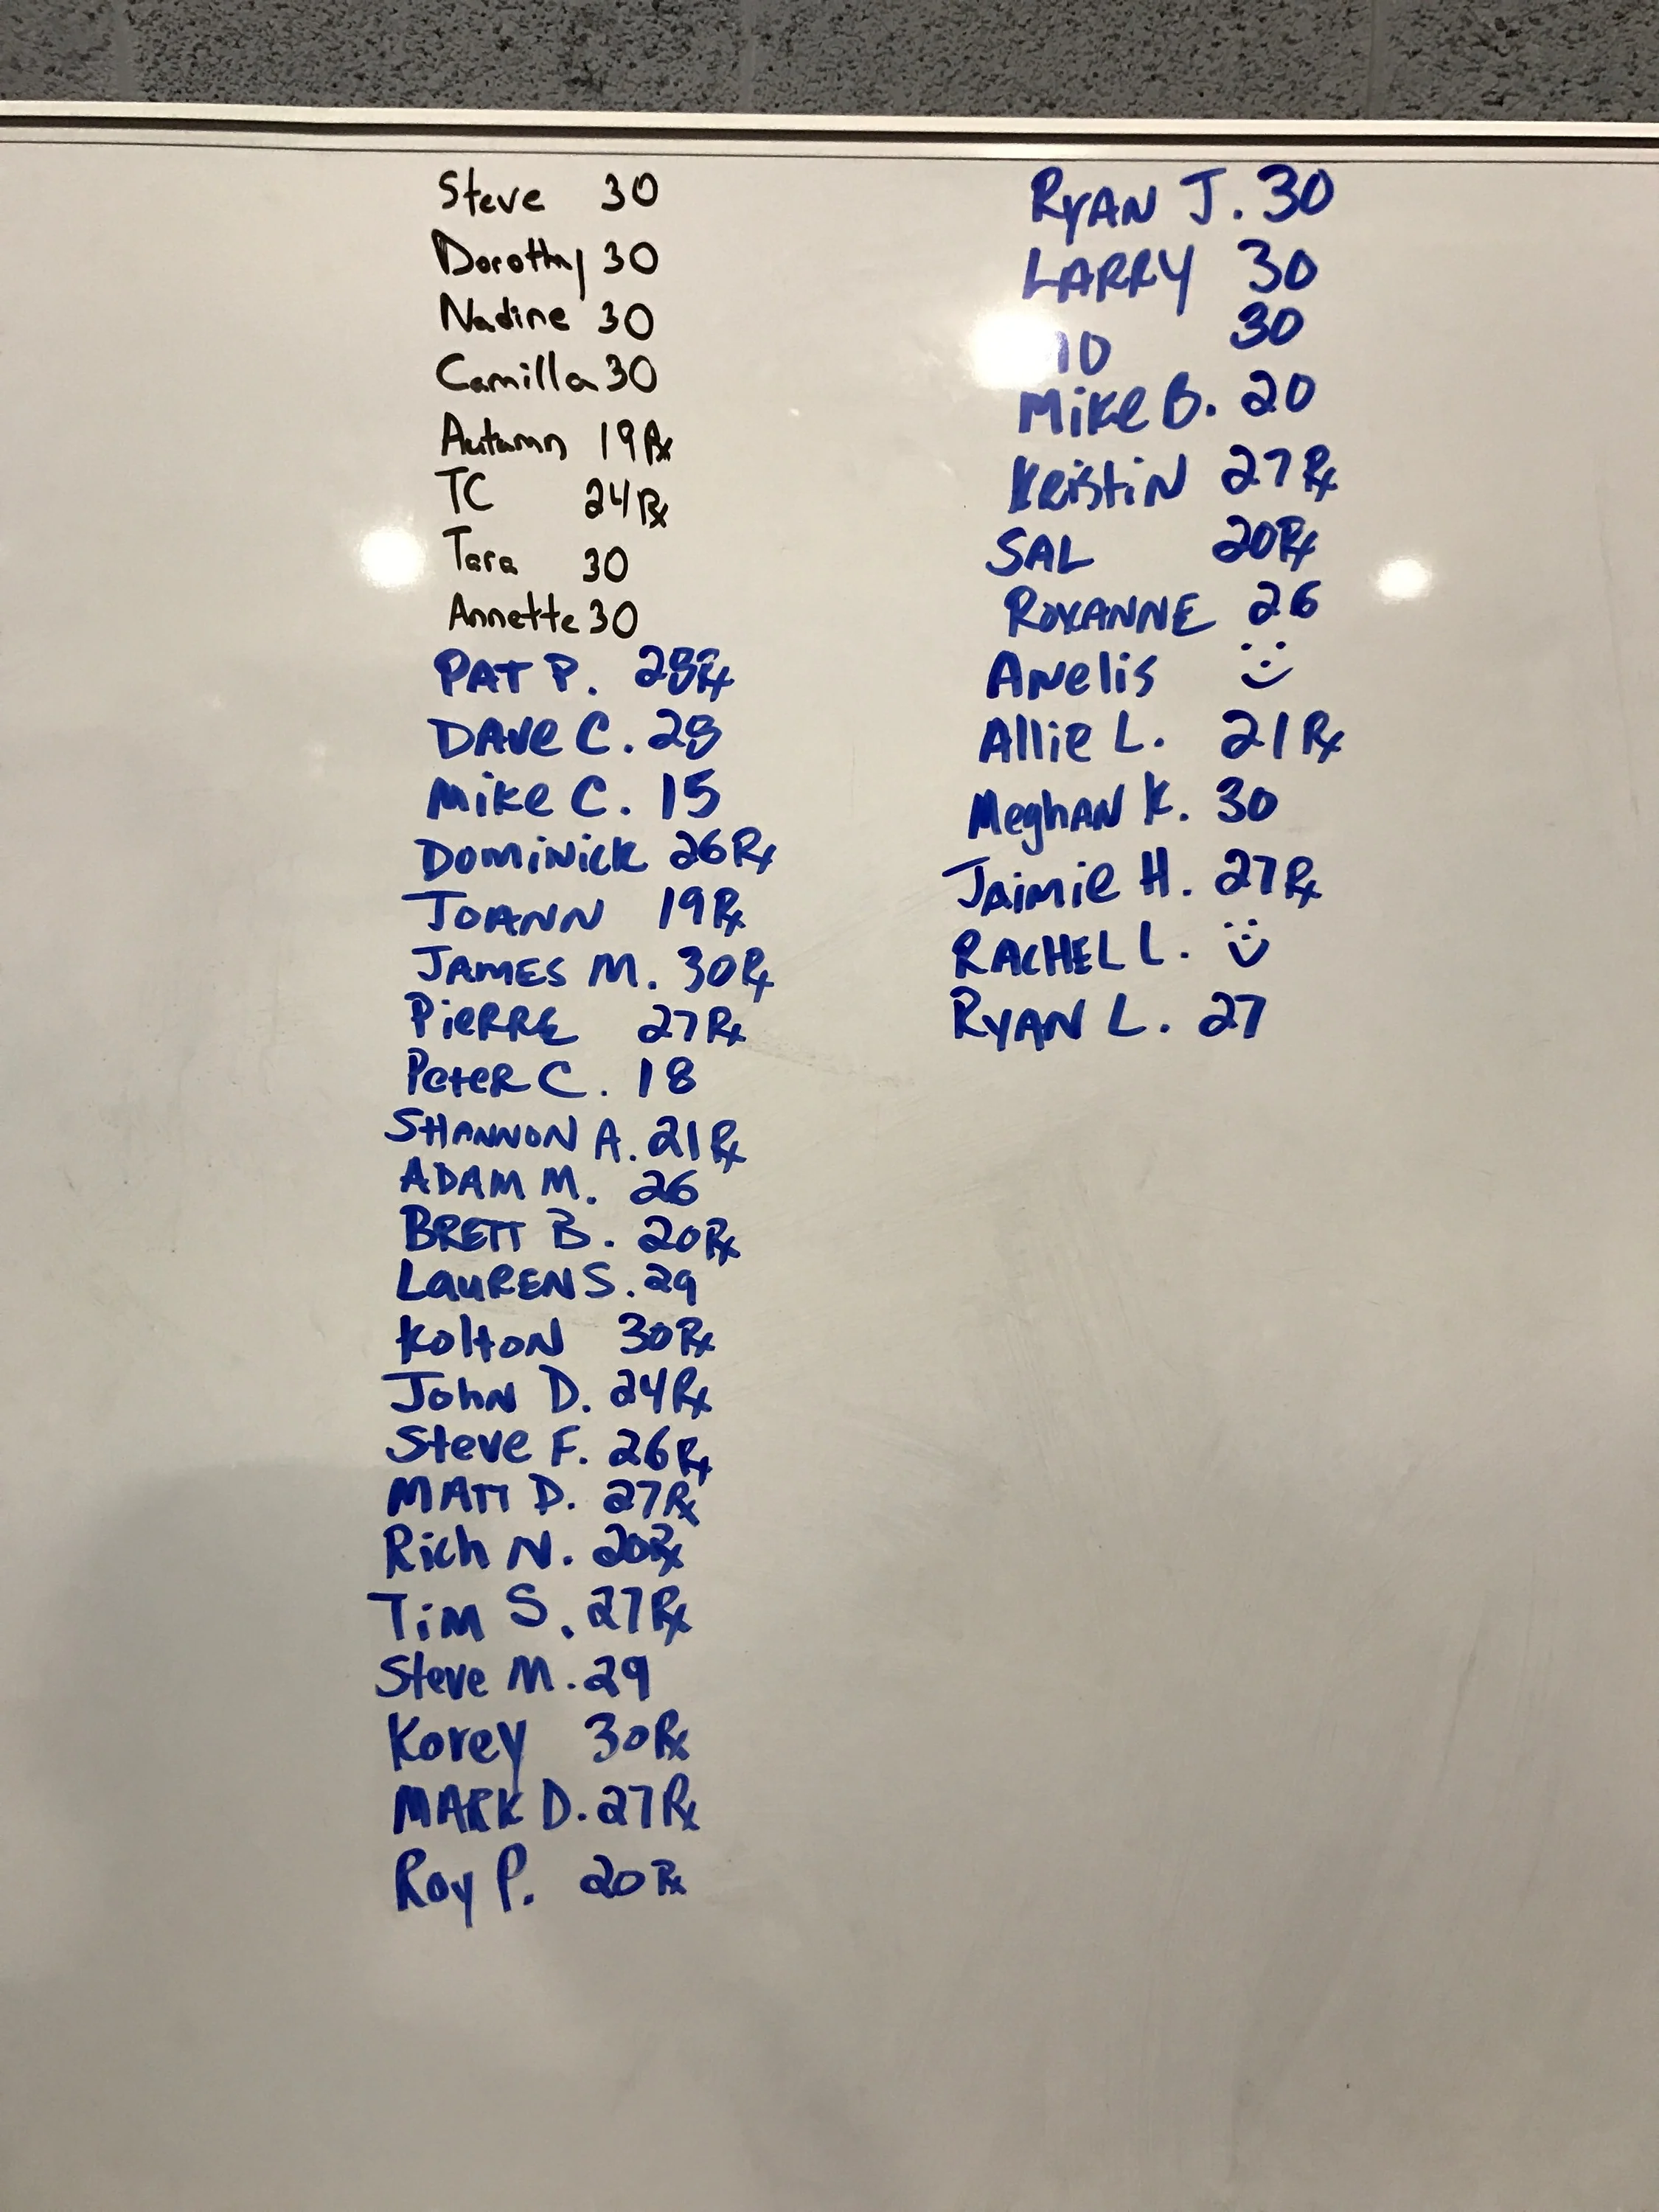 Steve 30
Dorothy 30
Nadine 30
Camilla 30
Autumn 19 Rx
TC 24 Rx
Tara 30
Annette 30
PAT P. 28 Rx
DAVE C. 28
Mike C. 15
DOMINICK 26 Rx
JOANN 19 Rx
JAMES M. 30 Rx
PIERRE 27 Rx
PeteR C. 18
SHANNON A. 21 Rx
ADAM M. 26
BRETT B. 20 Rx
LAUREN S. 29
KoltoN 30 Rx
JohN D. 24 Rx
Steve F. 26 Rx
MATT D. 27 Rx
Rich N. 20 Rx
TiM S. 27 Rx
Steve M. 29
Korey 30 Rx
MARK D. 27 Rx
Roy P. 20 Rx
RYAN J. 30
LARRY 30
30
Mike B. 20
KRistiN 27 Rx
SAL 20 Rx
ROXANNE 26
ANelis
Allie L. 21 Rx
MeghAN K. 30
JAimie H. 27 Rx
RACHEL L.
RYAN L. 27